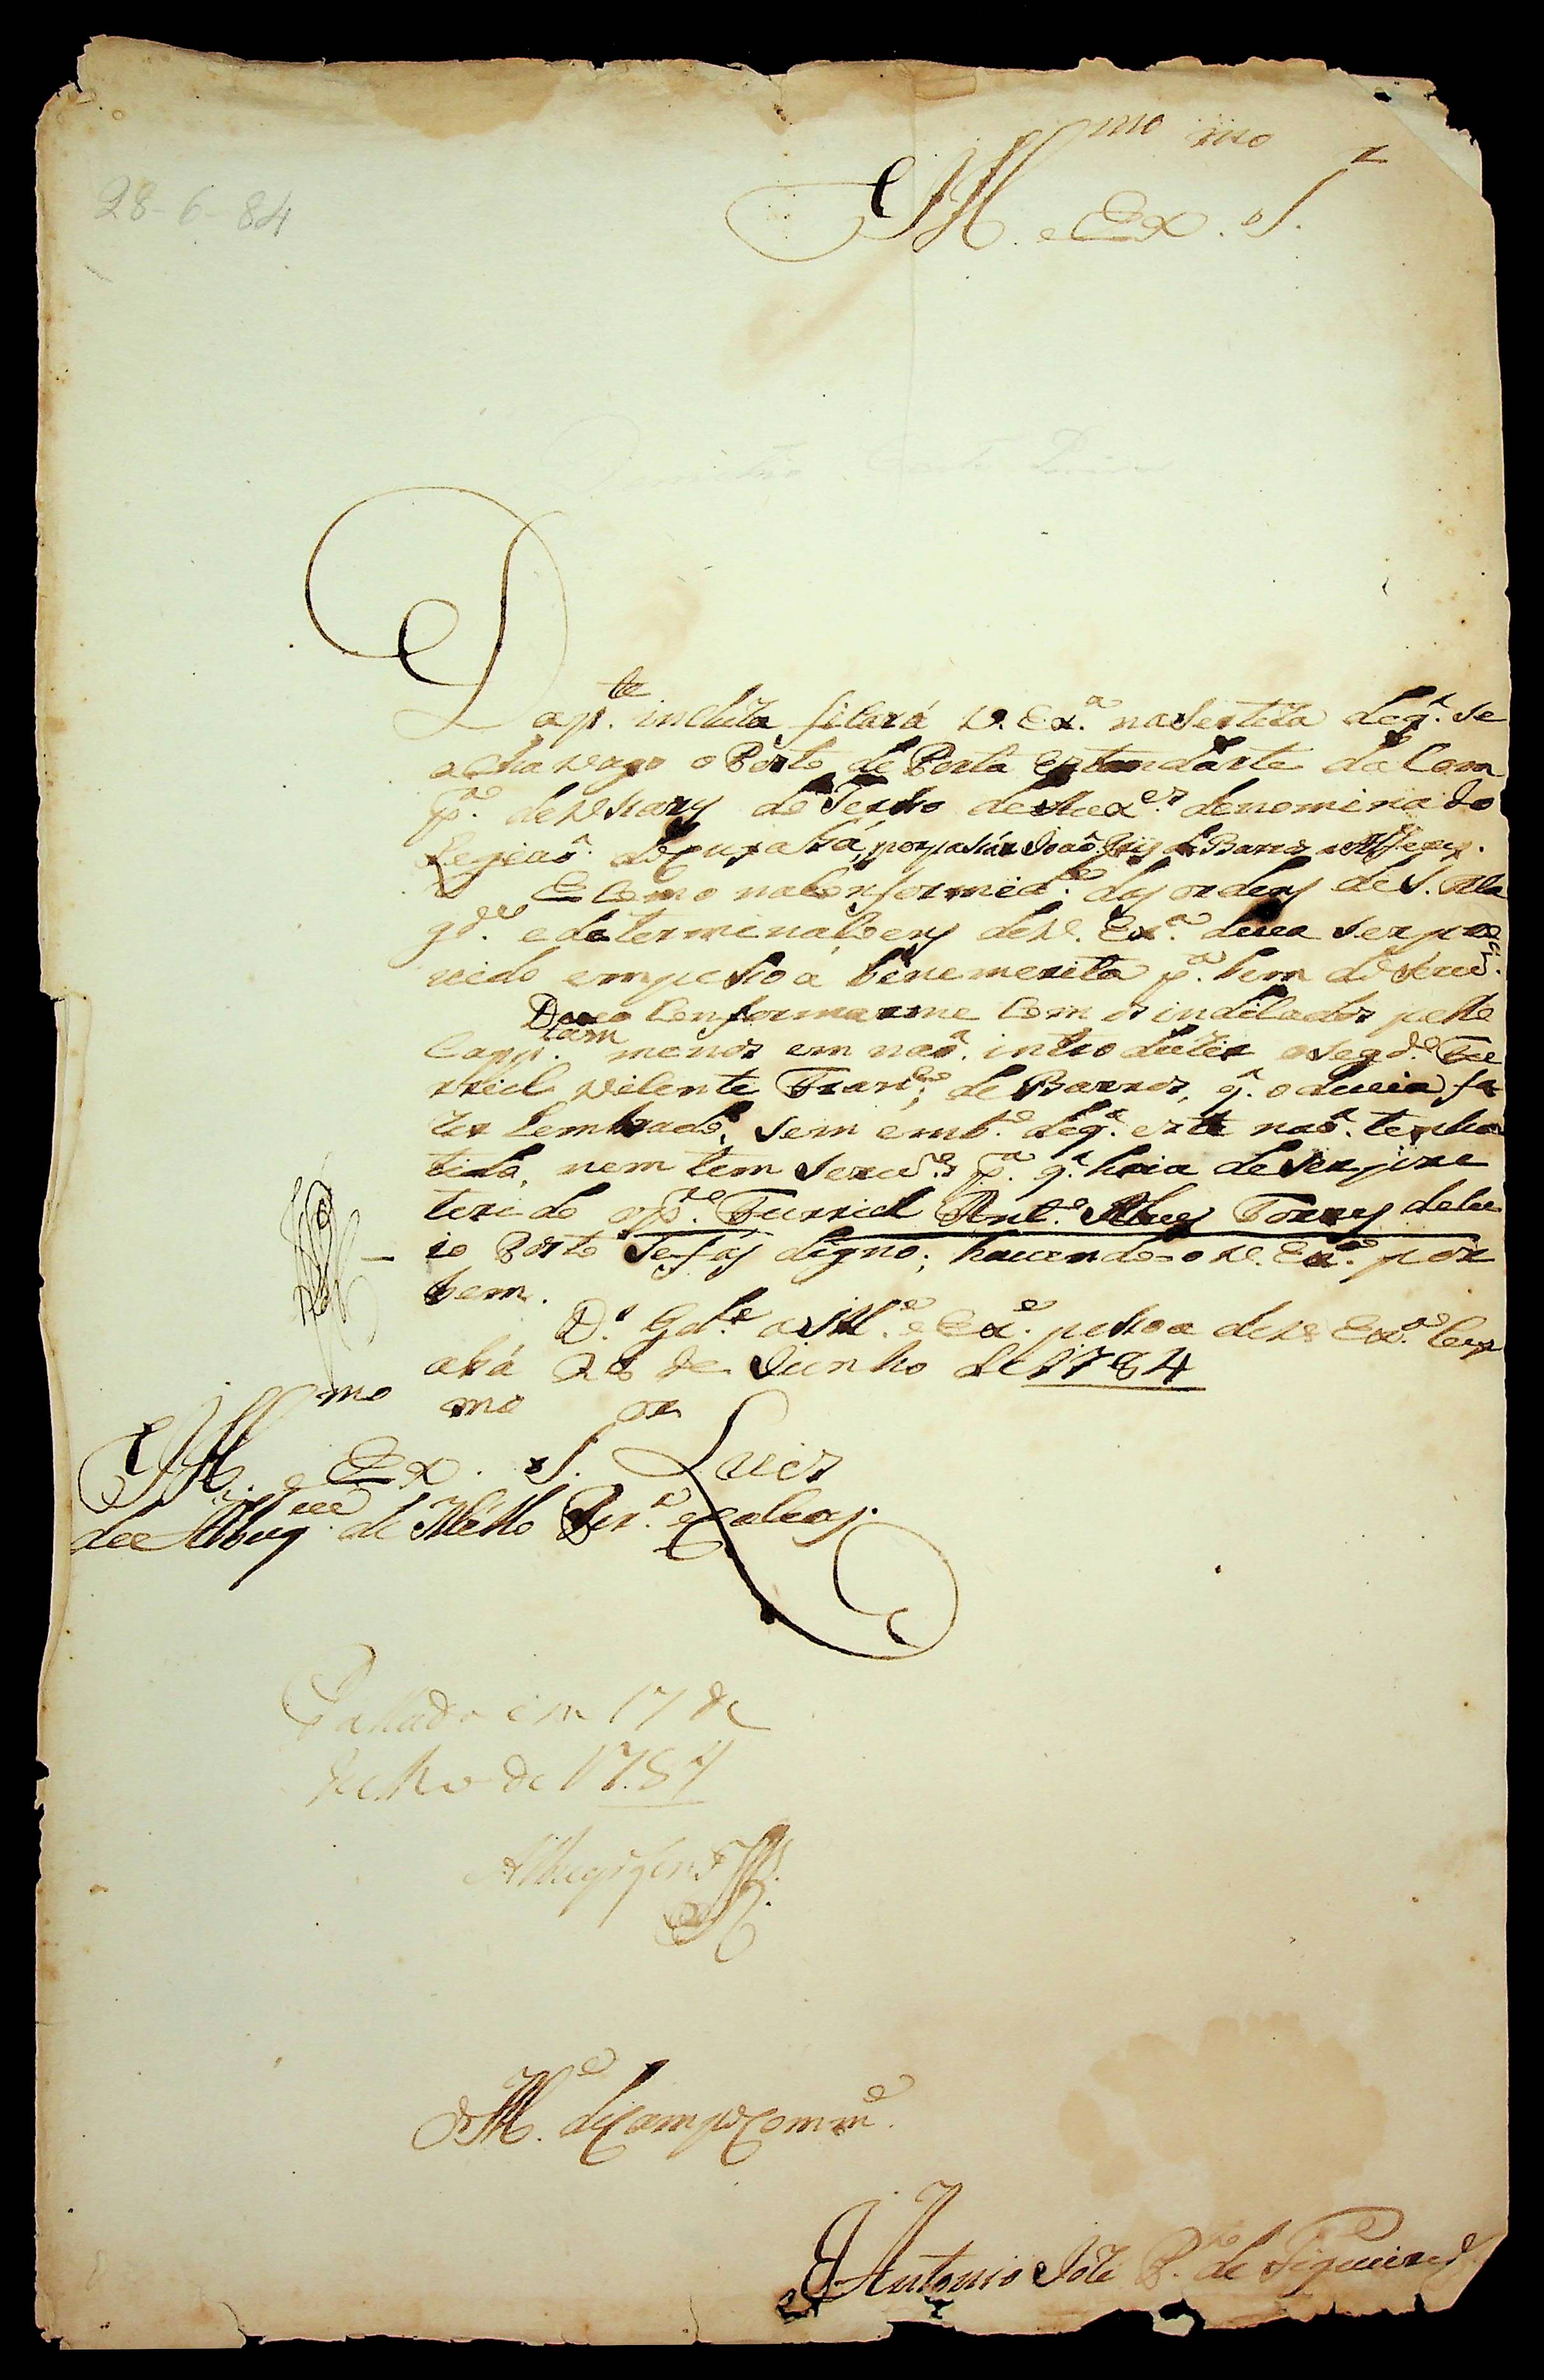 28-6-84
Ill.mo e Ex.mo S.r
Da p.te incluza ficará V. Ex.a na serteza de q̃. se
acha vago o Posto de Porta estandarte da Com
p.a de Ussarȷ do Terso de Aux.es denominado
Legiaõ do Cuyabá, por pasar Joaõ de Barros a Alferes.
E como na conformid.e das ordens de S. Ma
g.de e determinaçoens de V. Ex.a deva ser pro
vido em pessoa benemerita p.a bem do
Devo conformarme com os indicados pello
Cap.tam menos em naõ introduzir o seg.do Fur
riel Vicente Fran.co de Barros, q̃. o devia fa
zer lembrado, sem emb.o de q̃. este naõ tenha
tido, nem tem p.a q̃. haia de ser pre
terido o p.ro Furriel Ant.o Alves Torres de cu
io Posto se fás digno; havendo-o V. Ex.a por
bem.
D.s G.de a Ill.e e Ex.e pessoa de V. Ex.a Cuy
abá 28 de Junho de 1784
Ill.mo e Ex.mo S.or Luis
de Albuq.ue de Mello Per.a e Caceres.
Passado em 17 de
de 1784
M.e de Campo Comm.e
Antonio José P.to de Figueired.o